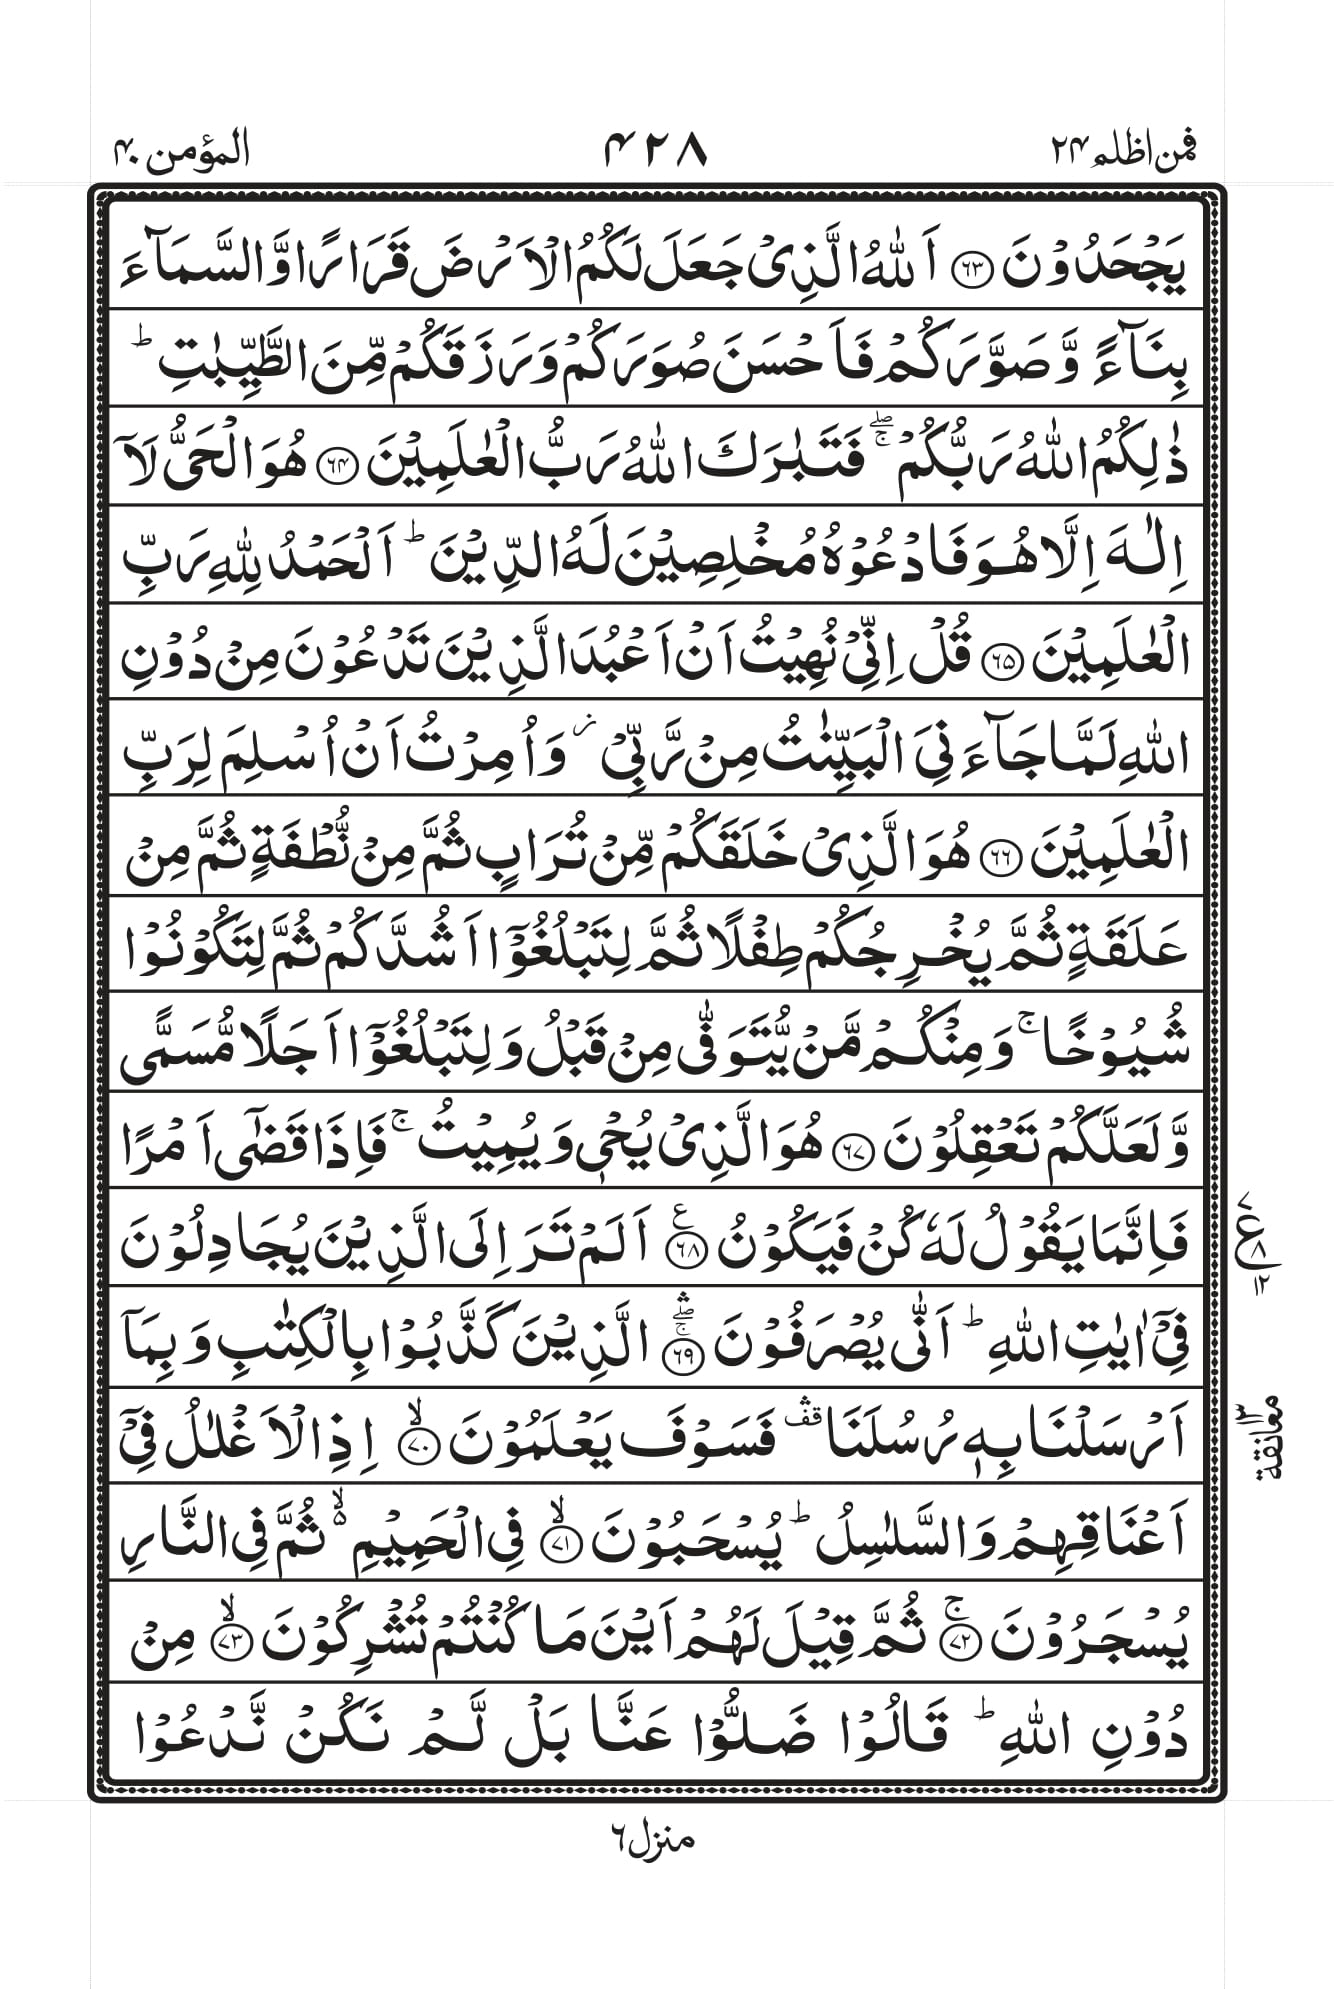 فمن اظلم ۲۴
۴۲۸
المؤمن ۴۰
يَجْحَدُوْنَ ۶۳ اَللّٰهُ الَّذِىْ جَعَلَ لَكُمُ الْاَرْضَ قَرَارًا وَّالسَّمَآءَ
بِنَآءً وَّصَوَّرَكُمْ فَاَحْسَنَ صُوَرَكُمْ وَرَزَقَكُمْ مِّنَ الطَّيِّبٰتِ ؕ
ذٰلِكُمُ اللّٰهُ رَبُّكُمْ ۖۚ فَتَبٰرَكَ اللّٰهُ رَبُّ الْعٰلَمِيْنَ ۶۴ هُوَ الْحَىُّ لَآ
اِلٰهَ اِلَّا هُوَ فَادْعُوْهُ مُخْلِصِيْنَ لَهُ الدِّيْنَ ؕ اَلْحَمْدُ لِلّٰهِ رَبِّ
الْعٰلَمِيْنَ ۶۵ قُلْ اِنِّىْ نُهِيْتُ اَنْ اَعْبُدَ الَّذِيْنَ تَدْعُوْنَ مِنْ دُوْنِ
اللّٰهِ لَمَّا جَآءَنِىَ الْبَيِّنٰتُ مِنْ رَّبِّىْ ز وَاُمِرْتُ اَنْ اُسْلِمَ لِرَبِّ
الْعٰلَمِيْنَ ۶۶ هُوَ الَّذِىْ خَلَقَكُمْ مِّنْ تُرَابٍ ثُمَّ مِنْ نُّطْفَةٍ ثُمَّ مِنْ
عَلَقَةٍ ثُمَّ يُخْرِجُكُمْ طِفْلًا ثُمَّ لِتَبْلُغُوْٓا اَشُدَّكُمْ ثُمَّ لِتَكُوْنُوْا
شُيُوْخًا ۚ وَمِنْكُمْ مَّنْ يُّتَوَفّٰى مِنْ قَبْلُ وَلِتَبْلُغُوْٓا اَجَلًا مُّسَمًّى
وَّلَعَلَّكُمْ تَعْقِلُوْنَ ۶۷ هُوَ الَّذِىْ يُحْىٖ وَيُمِيْتُ ۚ فَاِذَا قَضٰٓى اَمْرًا
فَاِنَّمَا يَقُوْلُ لَهٗ كُنْ فَيَكُوْنُ ۶۸ ع اَلَمْ تَرَ اِلَى الَّذِيْنَ يُجَادِلُوْنَ
ع ۷ ۸ ۱۲
فِىْٓ اٰيٰتِ اللّٰهِ ؕ اَنّٰى يُصْرَفُوْنَ ۶۹ ۛۖۚ الَّذِيْنَ كَذَّبُوْا بِالْكِتٰبِ وَبِمَآ
اَرْسَلْنَا بِهٖ رُسُلَنَا ۛقف فَسَوْفَ يَعْلَمُوْنَ ۷۰ ۙ اِذِ الْاَغْلٰلُ فِىْٓ
معانقة ۱۳
اَعْنَاقِهِمْ وَالسَّلٰسِلُ ؕ يُسْحَبُوْنَ ۷۱ ۙ فِى الْحَمِيْمِ ۙ۬ ثُمَّ فِى النَّارِ
يُسْجَرُوْنَ ۷۲ ۚ ثُمَّ قِيْلَ لَهُمْ اَيْنَ مَا كُنْتُمْ تُشْرِكُوْنَ ۷۳ ۙ مِنْ
دُوْنِ اللّٰهِ ؕ قَالُوْا ضَلُّوْا عَنَّا بَلْ لَّمْ نَكُنْ نَّدْعُوْا
منزل ۶